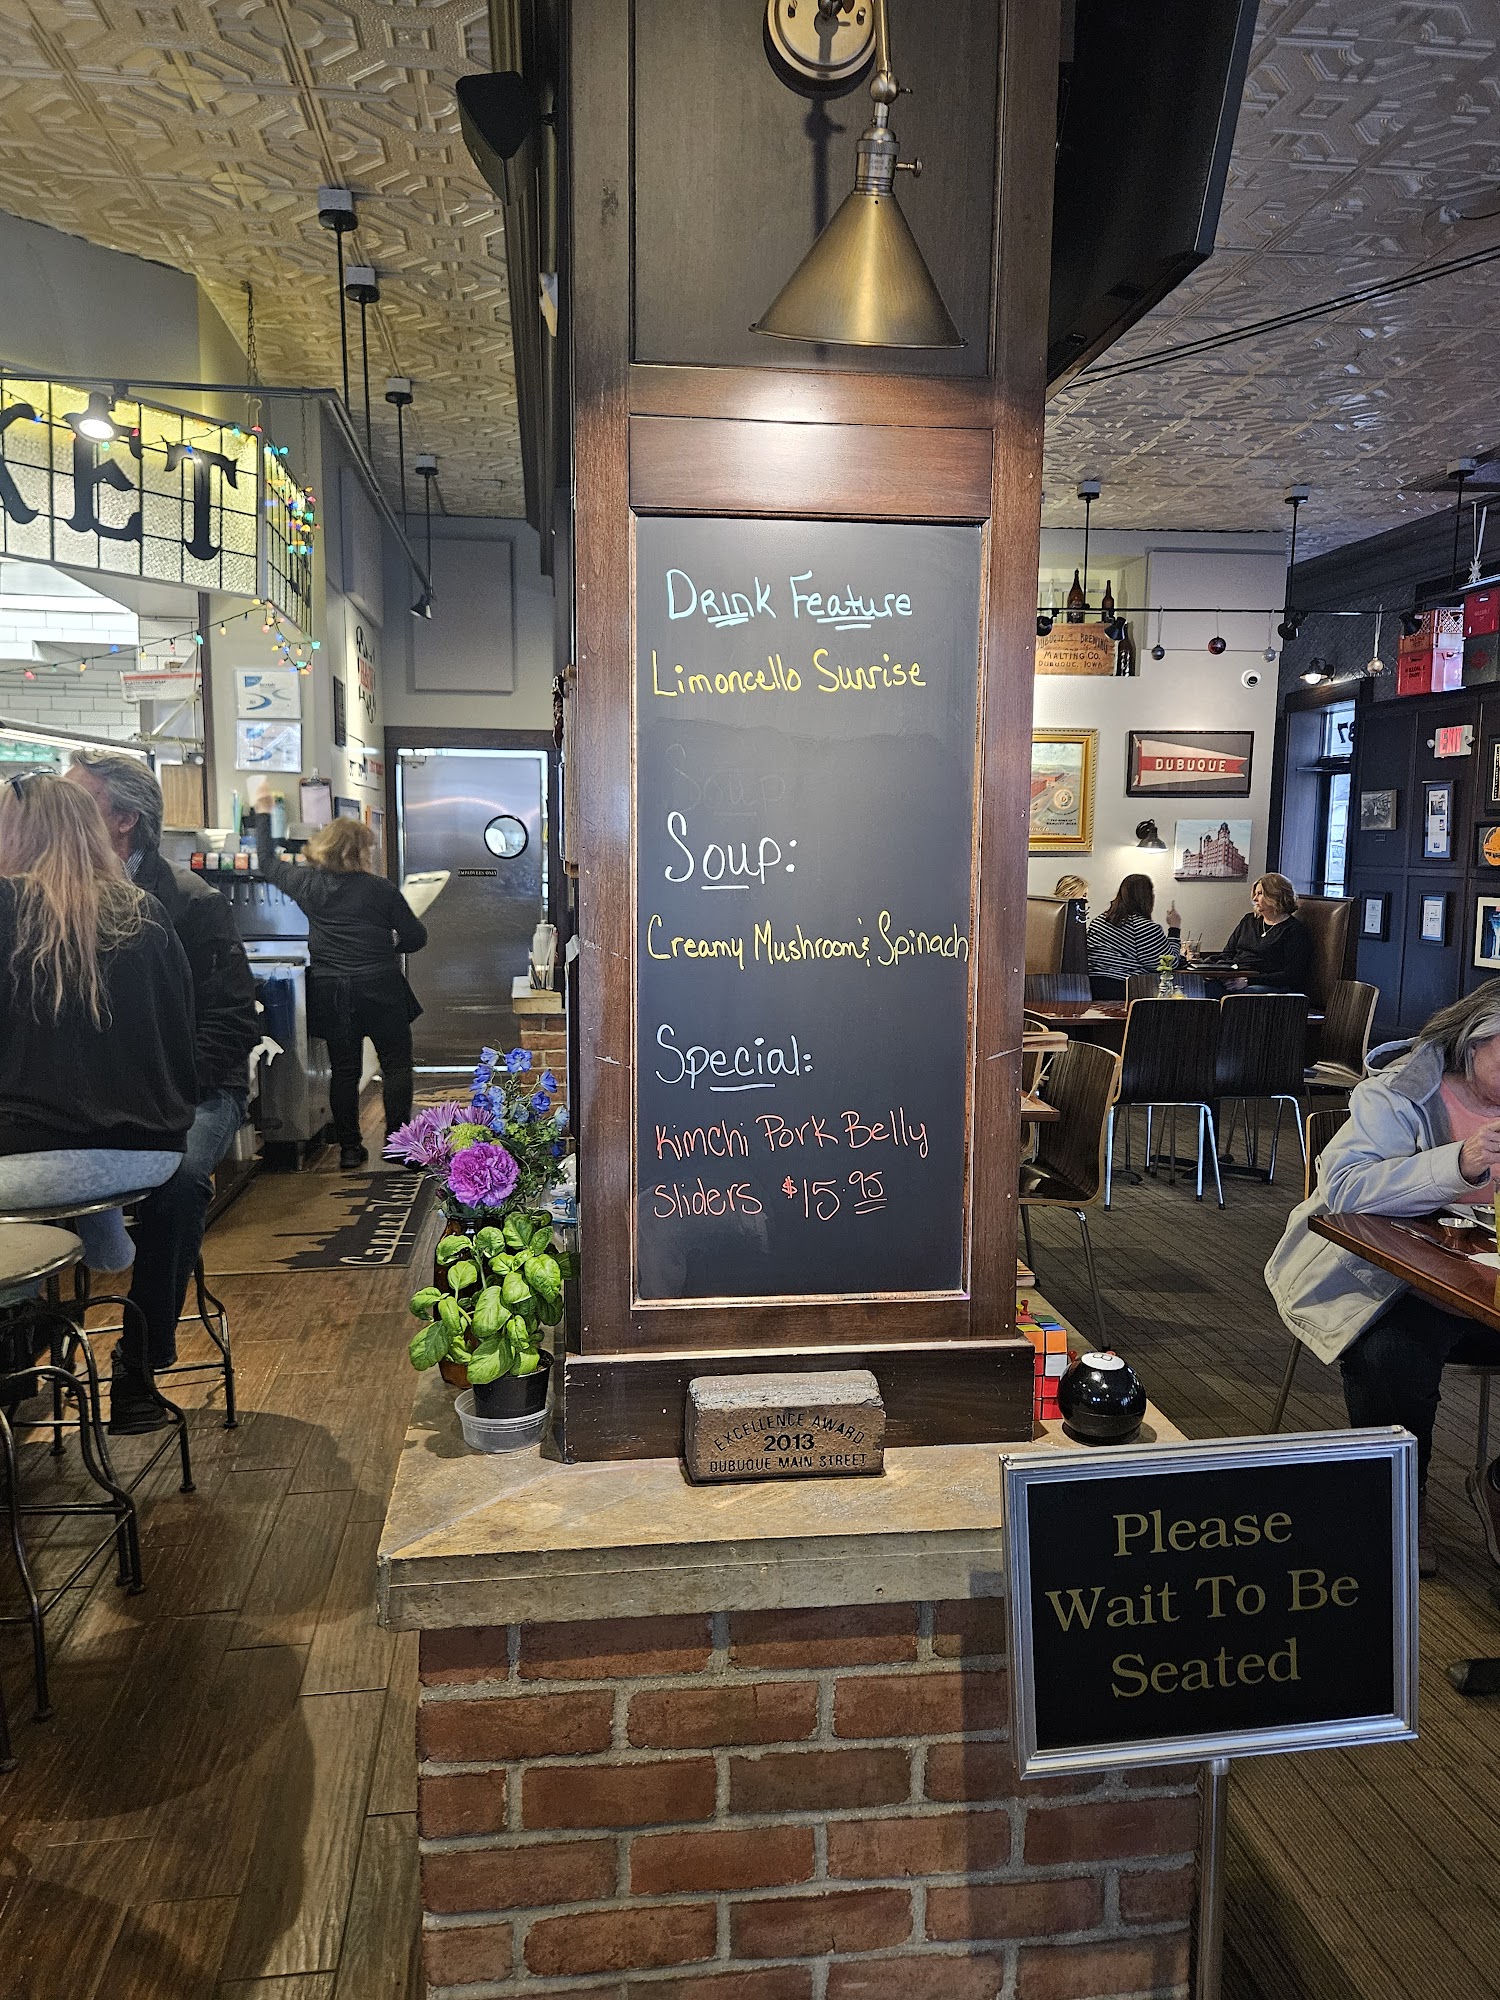 KET
Drink Feature
Limoncello Sunrise
Soup
Soup:
Creamy Mushroom & Spinach
Special:
Kimchi Pork Belly
Sliders $15.95
EXCELLENCE AWARD
2013
DUBUQUE MAIN STREET
Please
Wait To Be
Seated
EMPLOYEES ONLY
Copper Kettle
DUBUQUE BREWING
MALTING CO.
DUBUQUE, IOWA
DUBUQUE
EXIT